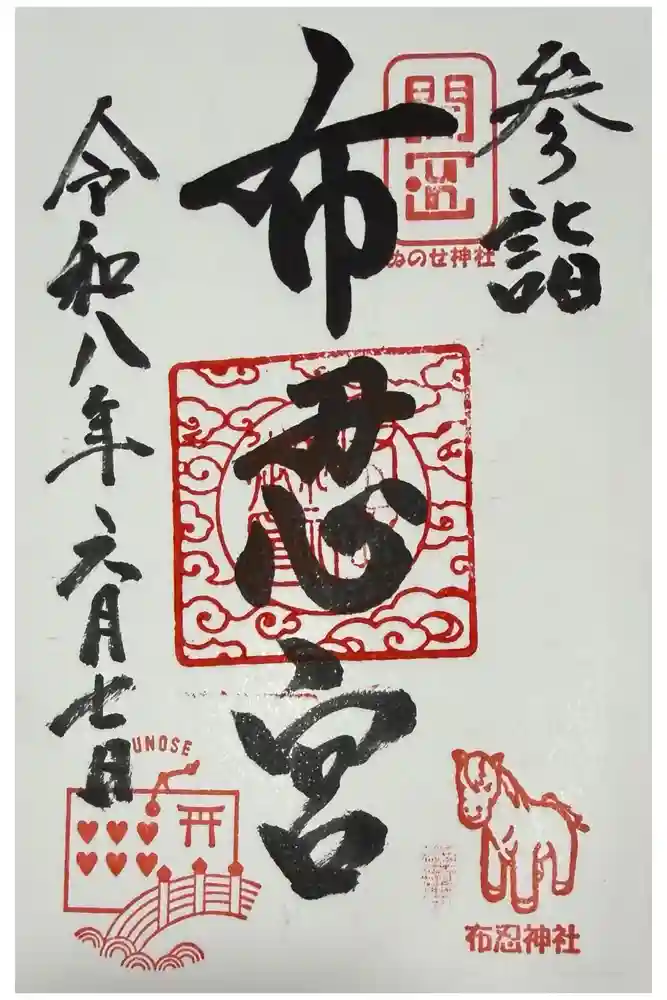 参詣
開運
ぬのせ神社
布忍宮
令和八年六月七日
NUNOSE
布忍神社